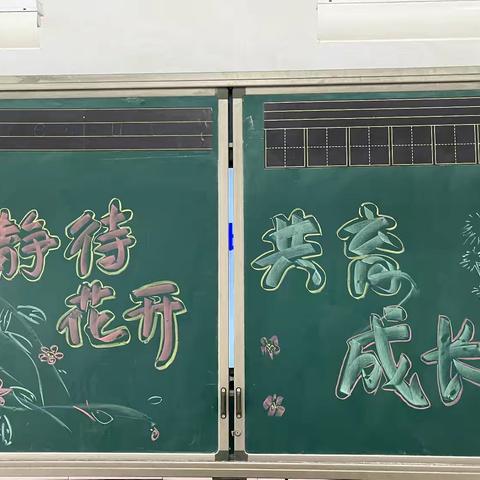 静待
花开
共育
成长